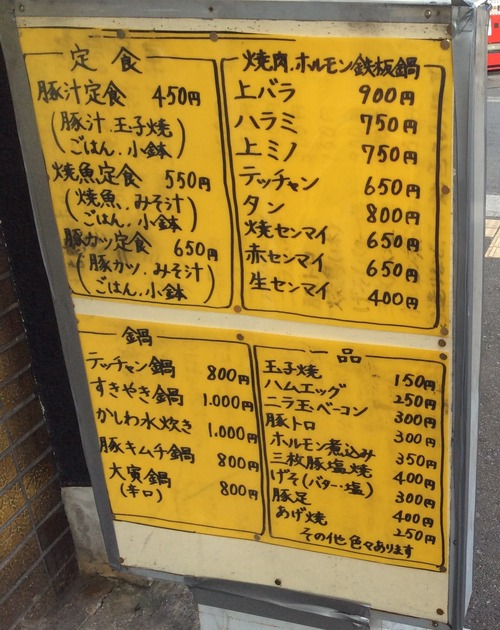 定食
豚汁定食 450円
(豚汁.玉子焼
ごはん.小鉢)
焼魚定食 550円
(焼魚.みそ汁
ごはん.小鉢)
豚カツ定食 650円
(豚カツ.みそ汁
ごはん.小鉢)
焼肉.ホルモン鉄板鍋
上バラ 900円
ハラミ 750円
上ミノ 750円
テッチャン 650円
タン 800円
焼センマイ 650円
赤センマイ 650円
生センマイ 400円
鍋
テッチャン鍋 800円
すきやき鍋 1.000円
かしわ水炊き 1.000円
豚キムチ鍋 800円
大寅鍋 800円
(辛口)
一品
玉子焼 150円
ハムエッグ 250円
ニラ玉・ベーコン 300円
豚トロ 300円
ホルモン煮込み 350円
三枚豚塩焼 400円
げそ(バター・塩) 300円
豚足 400円
あげ焼 250円
その他色々あります